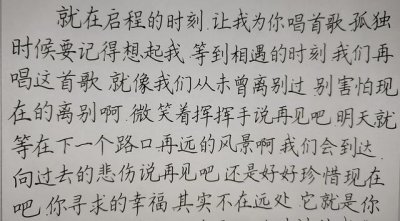 就在启程的时刻.让我为你唱首歌.孤独
时候要记得想起我.等到相遇的时刻.我们再
唱这首歌.就像我们从未曾离别过.别害怕现
在的离别啊.微笑着挥挥手说再见吧.明天就
等在下一个路口.再远的风景啊.我们会到达.
向过去的悲伤说再见吧.还是好好珍惜现在
吧.你寻求的幸福.其实不在远处.它就是你